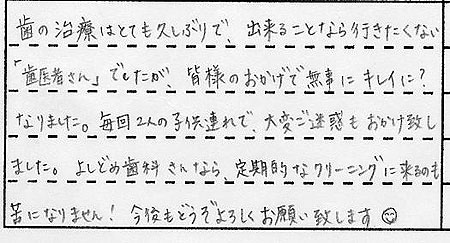 歯の治療はとても久しぶりで、出来ることなら行きたくない
「歯医者さん」でしたが、皆様のおかげで無事にキレイに?
なりました。毎回2人の子供連れで、大変ご迷惑もおかけ致し
ました。よしどめ歯科さんなら、定期的なクリーニングに来るのも
苦になりません!今後もどうぞよろしくお願い致します☺